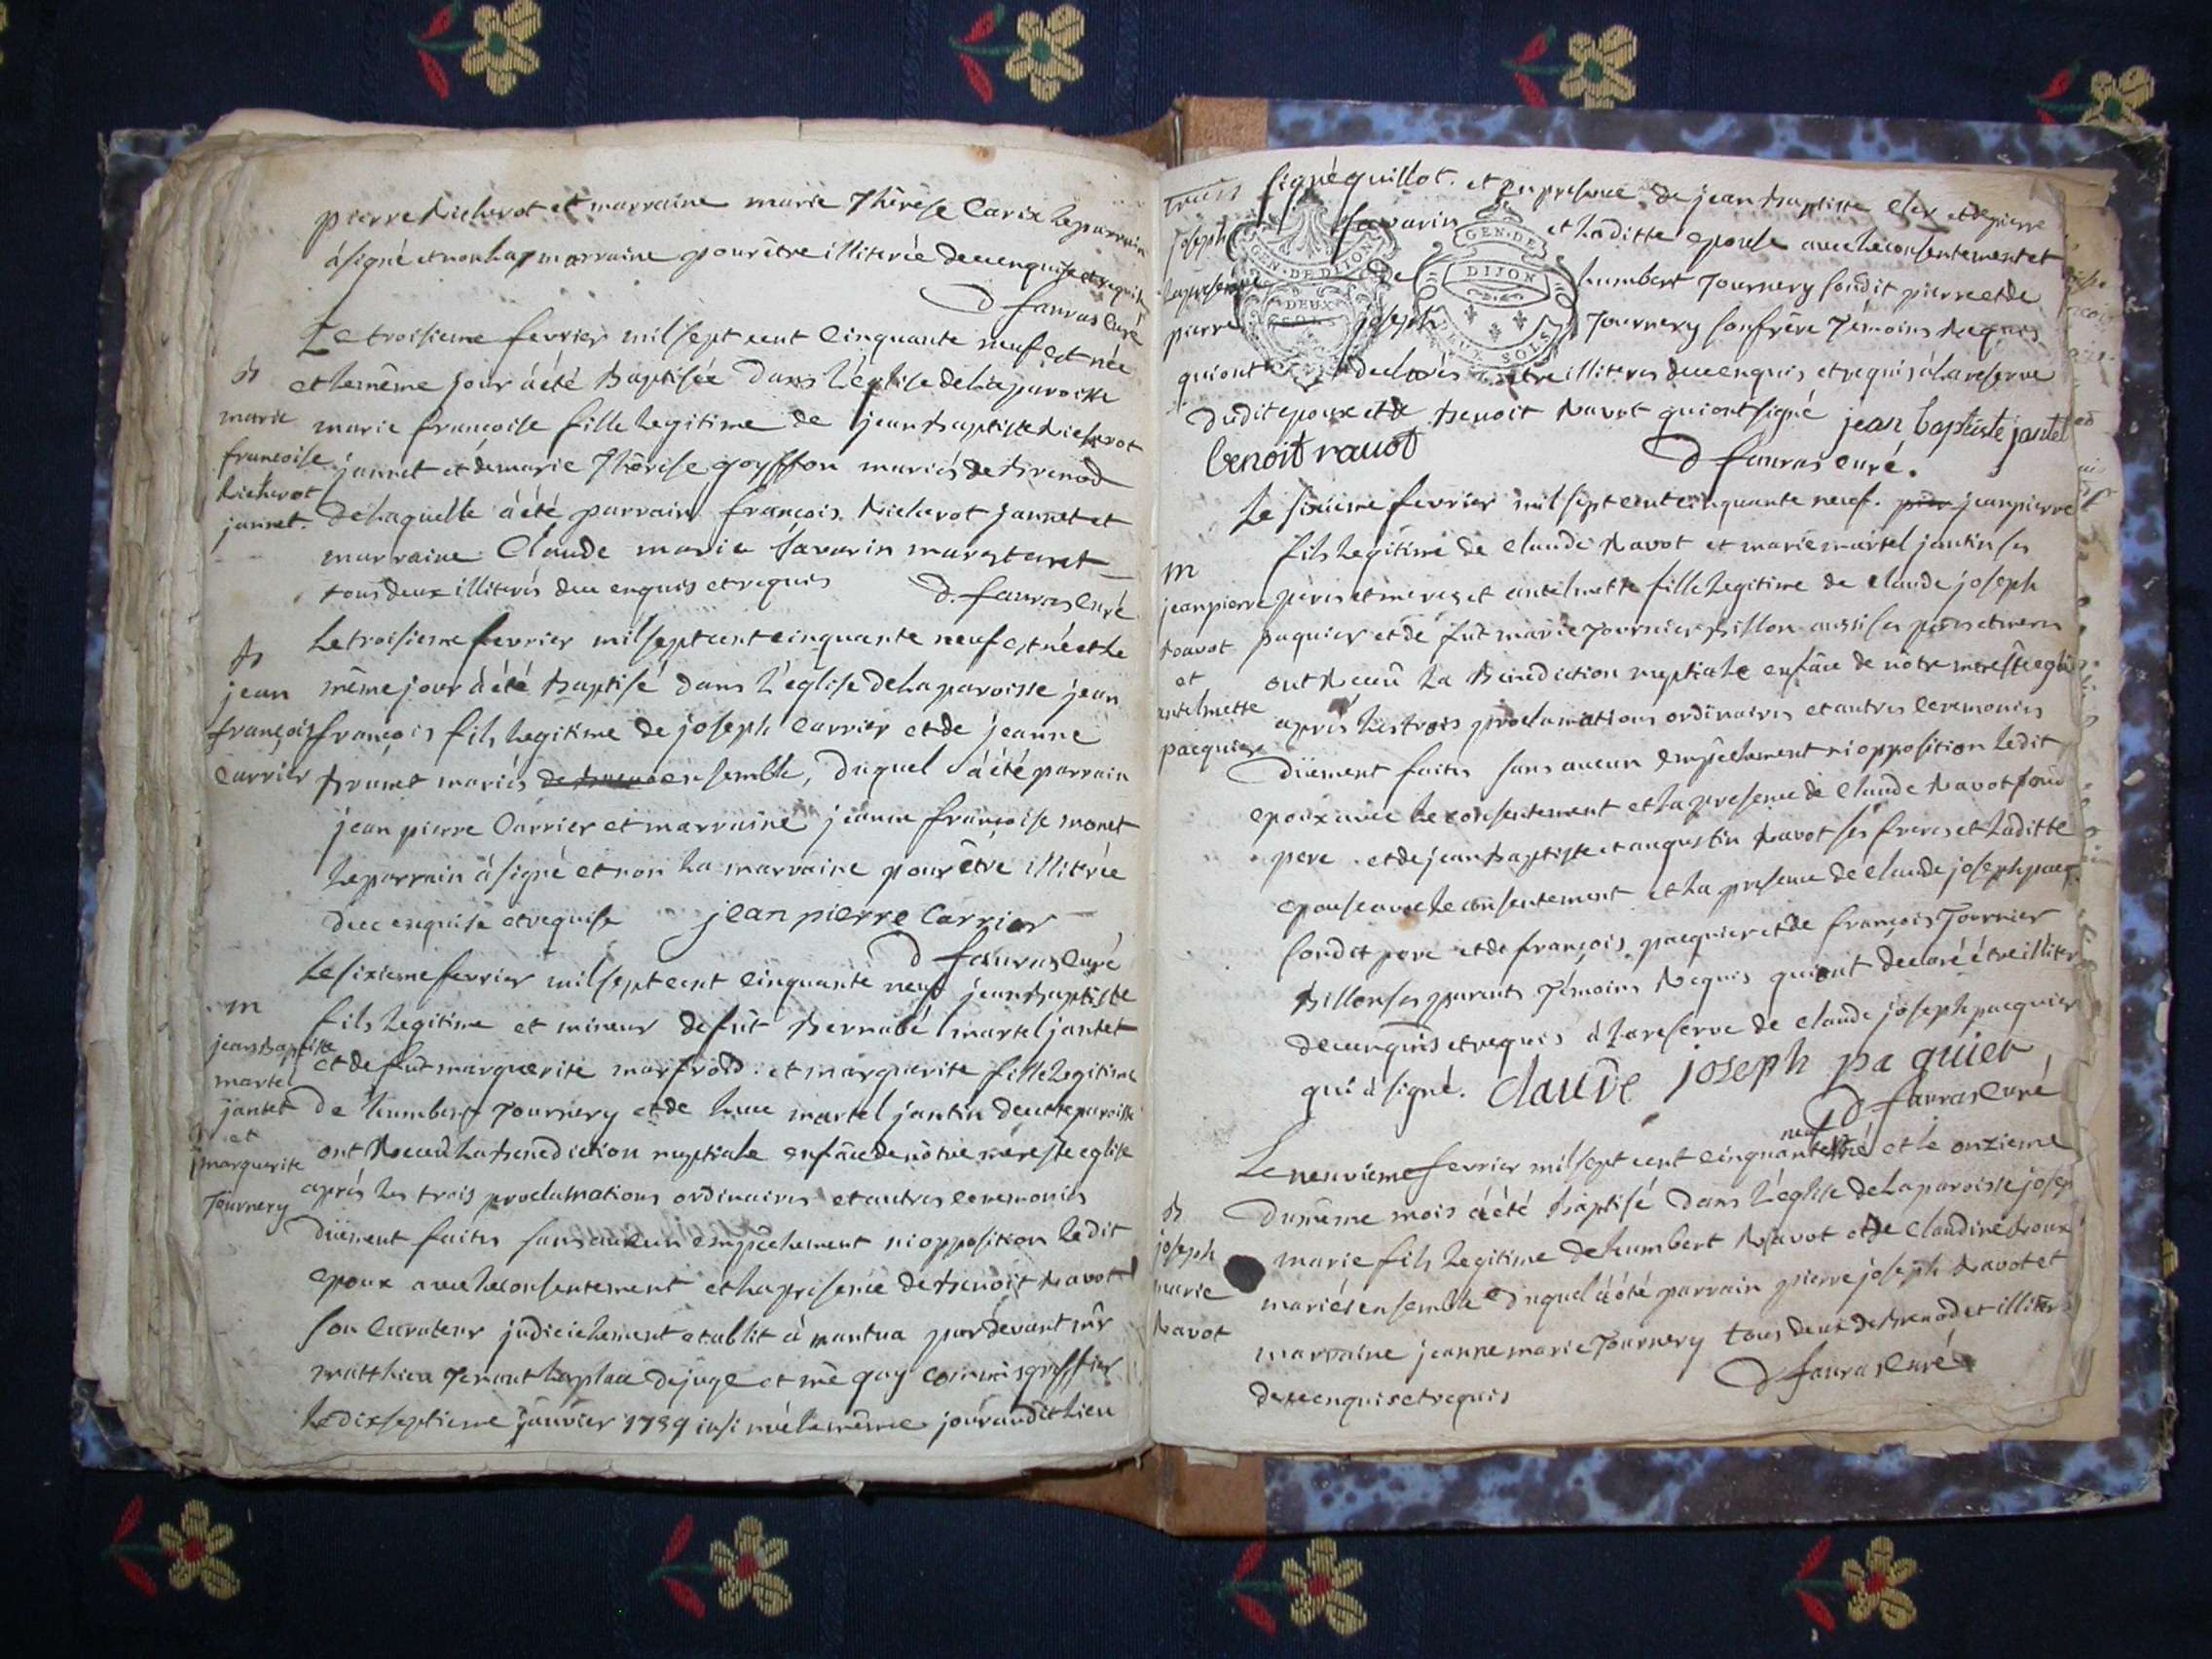 pierre Richerot et marraine marie Thérèse Carix le parrain
à signé et non la marraine pour être illiterée de ce enquise et requise
D favras curé
Le troisieme fevrier mil sept cent cinquante neuf est née
B
et le même jour à été Baptisée dans l'église de la paroisse
marie
marie francoise fille legitime de jean Baptiste Richerot
francoise
jannet et de marie Thérèse goyffon mariés de Brenod
Richerot
jannet.
de laquelle à été parrain francois Richerot jannet et
marraine Claude marie Savarin
tous deux illiterés de ce enquis et requis D. favras curé
Le troisieme fevrier mil sept cent cinquante neuf est né et le
B
jean
même jour à été Baptisé dans l'église de la paroisse jean
françois
francois fils legitime de joseph Carrier et de jeanne
Carrier
Brunet mariés ensemble, duquel à été parrain
jean pierre Carrier et marraine jeanne françoise monet
le parrain à signé et non la marraine pour être illiterée
de ce enquise et requise jean pierre Carrier
D favras curé
Le sixieme fevrier mil sept cent cinquante neuf jean Baptiste
m
fils legitime et mineur de fût Bernabé martel jantet
jean Baptiste
martel
et de fût marguerite marfroid. et marguerite fille legitime
jantet
de humbert Tournery et de martel jantin de cette paroisse
et
marguerite
ont Receu la Benediction nuptiale en fâce de nôtre mère ste eglise
Tournery
aprés les trois proclamations ordinaires et autres ceremonies
düement faites sans aucun empêchement ni opposition ledit
epoux avec le consentement et la presence de Benoit Ravot
son Curateur judiciellement etablit à nantua pardevant mr
matthieu la place de juge et me guy commis greffier
le dix septieme janvier 1759 insinué le même jour audit lieu
signé guillot. et en presence de jean Baptiste et de pierre
joseph Savarin et laditte epouse avec le consentement et
la presence de humbert Tournery sondit pierre et de
pierre joseph Tournery son frére Témoins Requis
qui ont declarés être illiteres de ce enquis et requis à la reserve
dudit epoux et de Benoit Ravot qui ont signé jean baptiste jantet
benoit ravot D favras curé.
GEN. DE DIJON
DEUX SOLS
GEN. DE
DIJON
DEUX SOLS
Le sixieme fevrier mil sept cent cinquante neuf. jean pierre
fils legitime de claude Ravot et marie martel jantin ses
m
jean pierre
péres et méres et antelmette fille legitime de claude joseph
Ravot
paquier et de fût marie Tournier Billon aussi ses peres et meres
et
ont Receu la Benediction nuptiale en fâce de nôtre mere ste eglise
antelmette
aprés les trois proclamations ordinaires et autres ceremonies
pacquier
düement faites sans aucun empêchement ni opposition ledit
epoux avec le consentement et la presence de claude Ravot sondit
pere et de jean Baptiste et augustin Ravot ses freres et laditte
epouse avec le consentement et la presence de claude joseph
sondit pere et de françois pacquier et de françois Tournier
Billon ses parents Témoins Requis qui ont declaré être illiteres
de ce enquis et requis à la reserve de claude joseph pacquier
qui à signé. claude joseph pa quier
D favras curé
neuf
Le neuvieme fevrier mil sept cent cinquante est né et le onzieme
B
du même mois à été Baptisé dans l'église de la paroisse joseph
joseph
marie fils legitime de humbert Ravot et de claudine
marie
mariés ensemble duquel à été parrain pierre joseph Ravot et
Ravot
marraine jeanne marie Tournery tous deux de Brenod et illiteres
de ce enquis et requis D favras curé